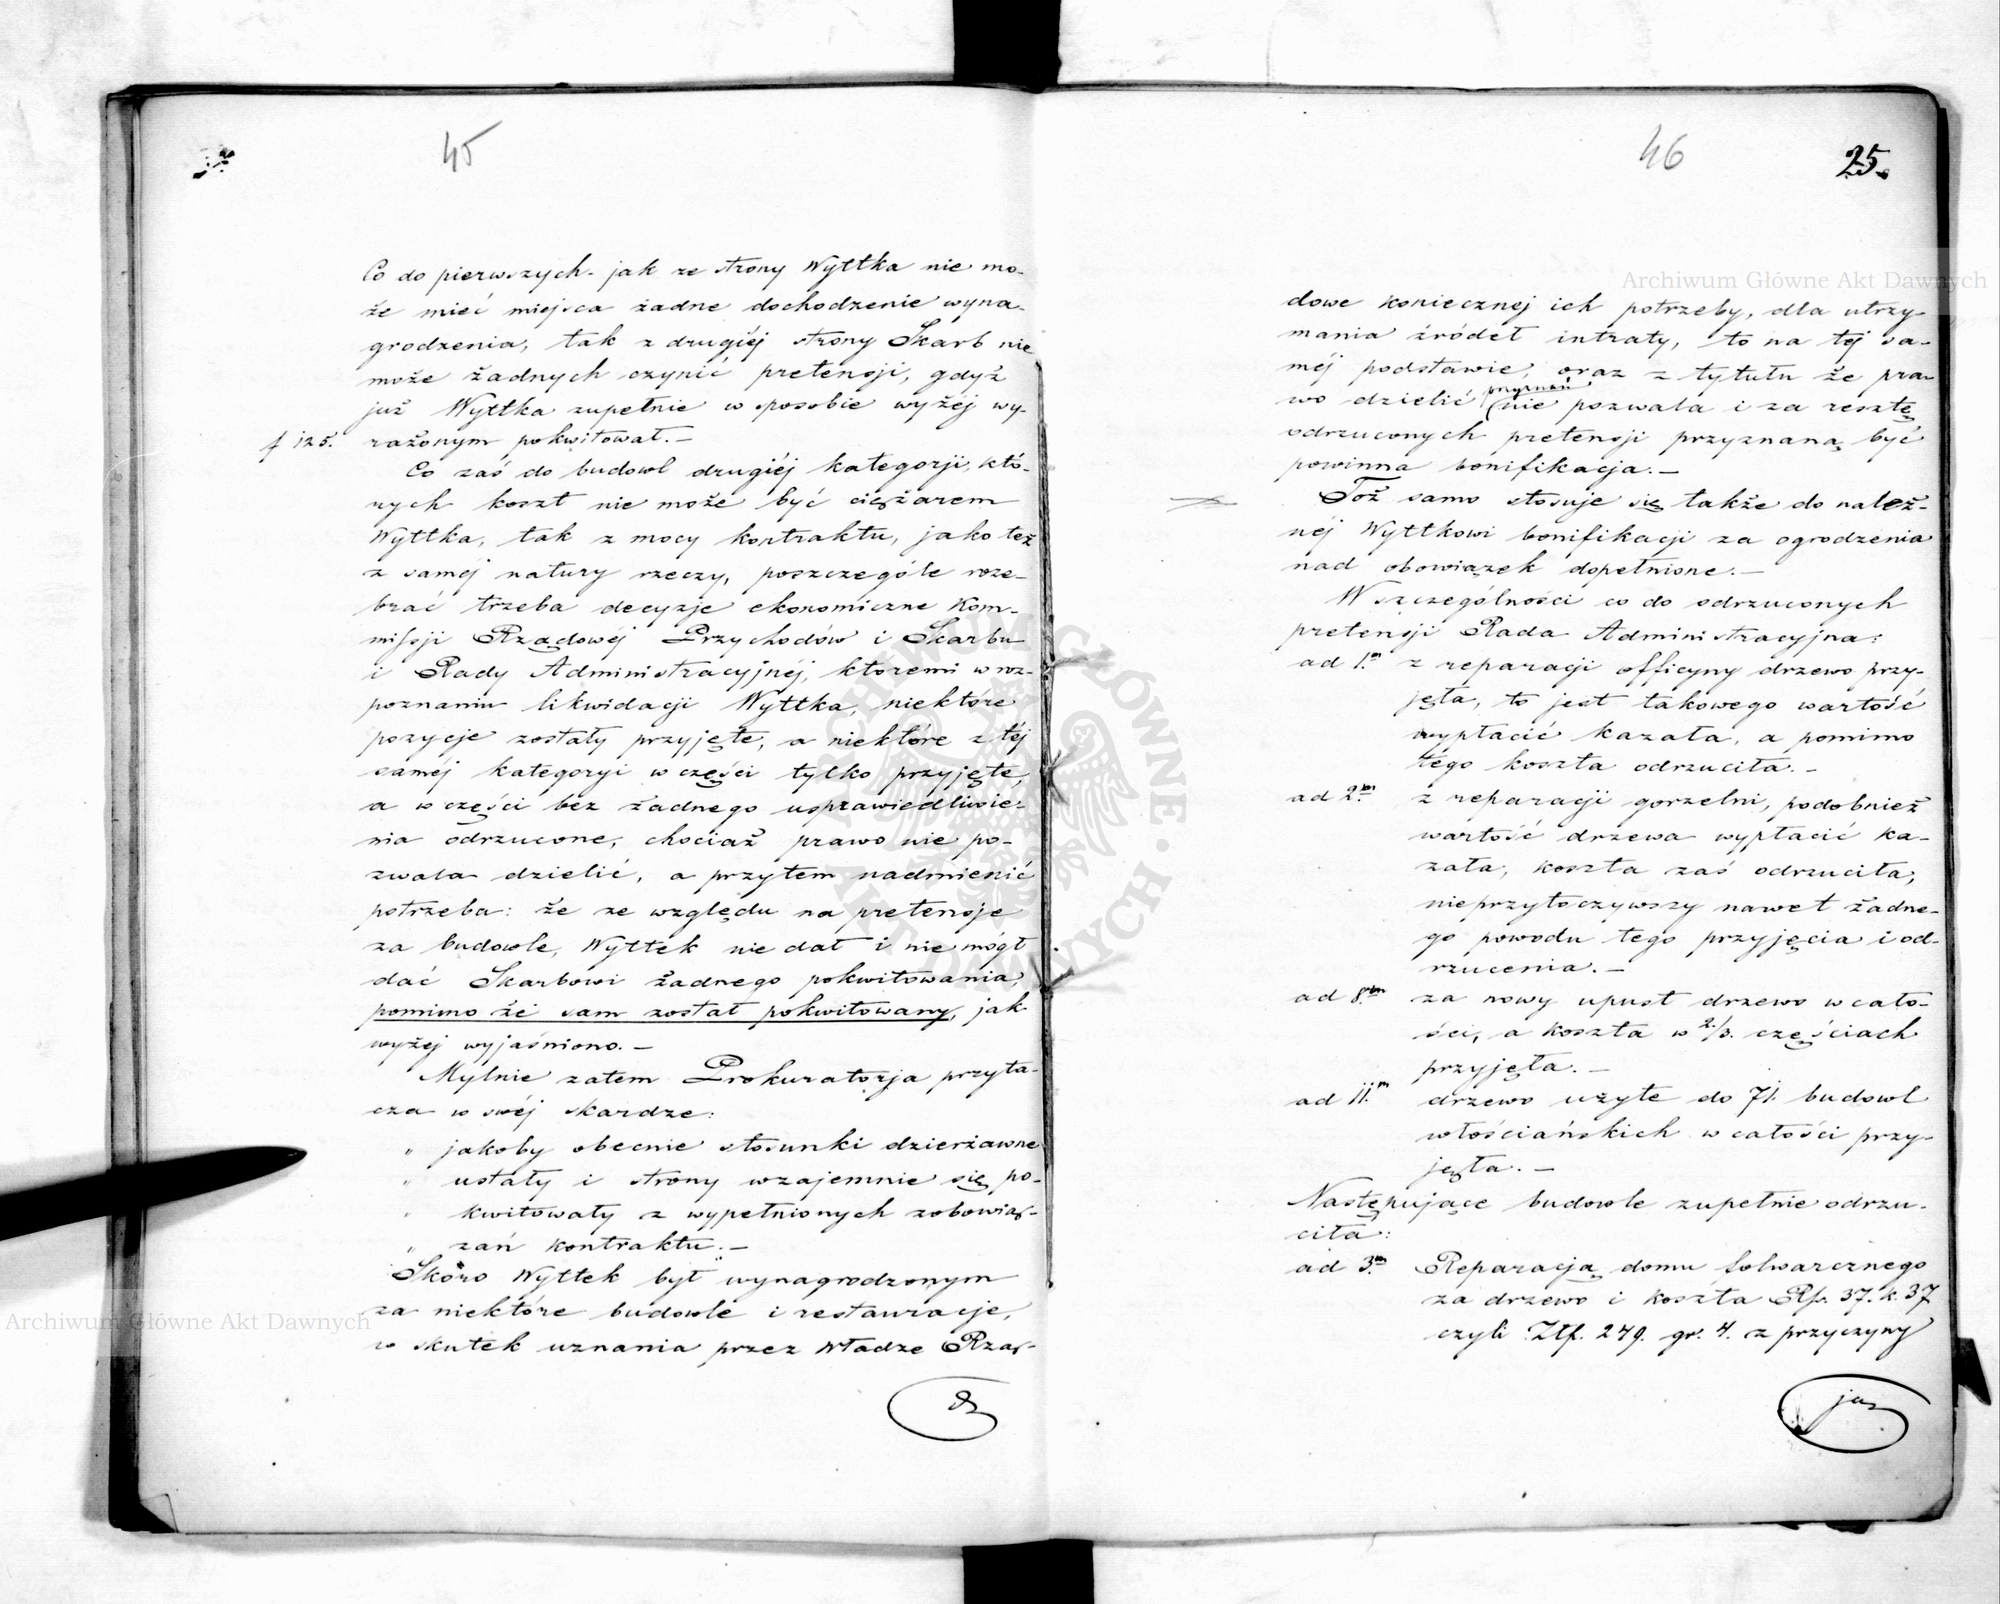 45
Co do pierwszych jak ze strony Wyttka nie mo-
że mieć miejsca żadne dochodzenie wyna-
grodzenia, tak z drugiéj strony Skarb nie
może żadnych czynić pretensji, gdyż
już Wyttka zupełnie w sposobie wyżéj wy-
f 125.
rażonym pokwitował.—
Co zaś do budowl drugiéj kategorji, któ-
rych koszt nie może być ciężarem
Wyttka, tak z mocy kontraktu, jako też
z saméj natury rzeczy, poszczególe roze-
brać trzeba decyzje ekonomiczne Kom-
missji Rządowéj Przychodów i Skarbu
i Rady Administracyjnéj, któremi w roz-
poznaniu likwidacji Wyttka, niektóre
pozycje zostały przyjęte, a niektóre z téj
saméj kategoryi w części tylko przyjęte,
a w części bez żadnego usprawiedliwie-
nia odrzucone, chociaż prawo nie po-
zwala dzielić, a przytem nadmienić
potrzeba: że ze względu na pretensje
za budowle, Wyttek nie dał i nie mógł
dać Skarbowi żadnego pokwitowania,
pomimo że sam został pokwitowany, jak
wyżéj wyjaśniono.—
Mylnie zatem Prokuratorja przyta-
cza w swéj skardze:
„ jakoby obecnie stosunki dzierżawne
„ ustały i strony wzajemnie się po-
„ kwitowały z wypełnionych zobowią-
„ zań kontraktu.—"
Skóro Wyttek był wynagrodzonym
za niektóre budowle i restauracje,
w skutek uznania przez Władze Rzą-
46
25.
dowe koniecznej ich potrzeby, dla utrzy-
mania źródeł intraty, to na téj sa-
méj podstawie, oraz z tytułu że pra-
wo dzielić przyznań nie pozwala i za resztę
odrzuconych pretensji przyznaną być
powinna bonifikacja.—
Toż samo stosuje się także do należ-
néj Wyttkowi bonifikacji za ogrodzenia
nad obowiązek dopełnione.—
W szczególności co do odrzuconych
pretensji Rada Administracyjna:
ad 1.m z reparacji officyny drzewo przy-
jęła, to jest takowego wartość
wypłacić kazała, a pomimo
tego koszta odrzuciła.—
ad 2.m z reparacji gorzelni, podobnież
wartość drzewa wypłacić ka-
zała, koszta zaś odrzuciła,
nieprzytoczywszy nawet żadne-
go powodu tego przyjęcia i od-
rzucenia.—
ad 8.m za nowy upust drzewo w cało-
ści, a koszta w 2/3. częściach
przyjęła.—
ad 11.m drzewo użyte do 71. budowl
włościańskich w całości przy-
jęła.—
Następujące budowle zupełnie odrzu-
ciła:
ad 3.m Reparacją domu folwarcznego
za drzewo i koszta Rs. 37. k. 37
czyli Złp. 249. gr. 4. z przyczyny